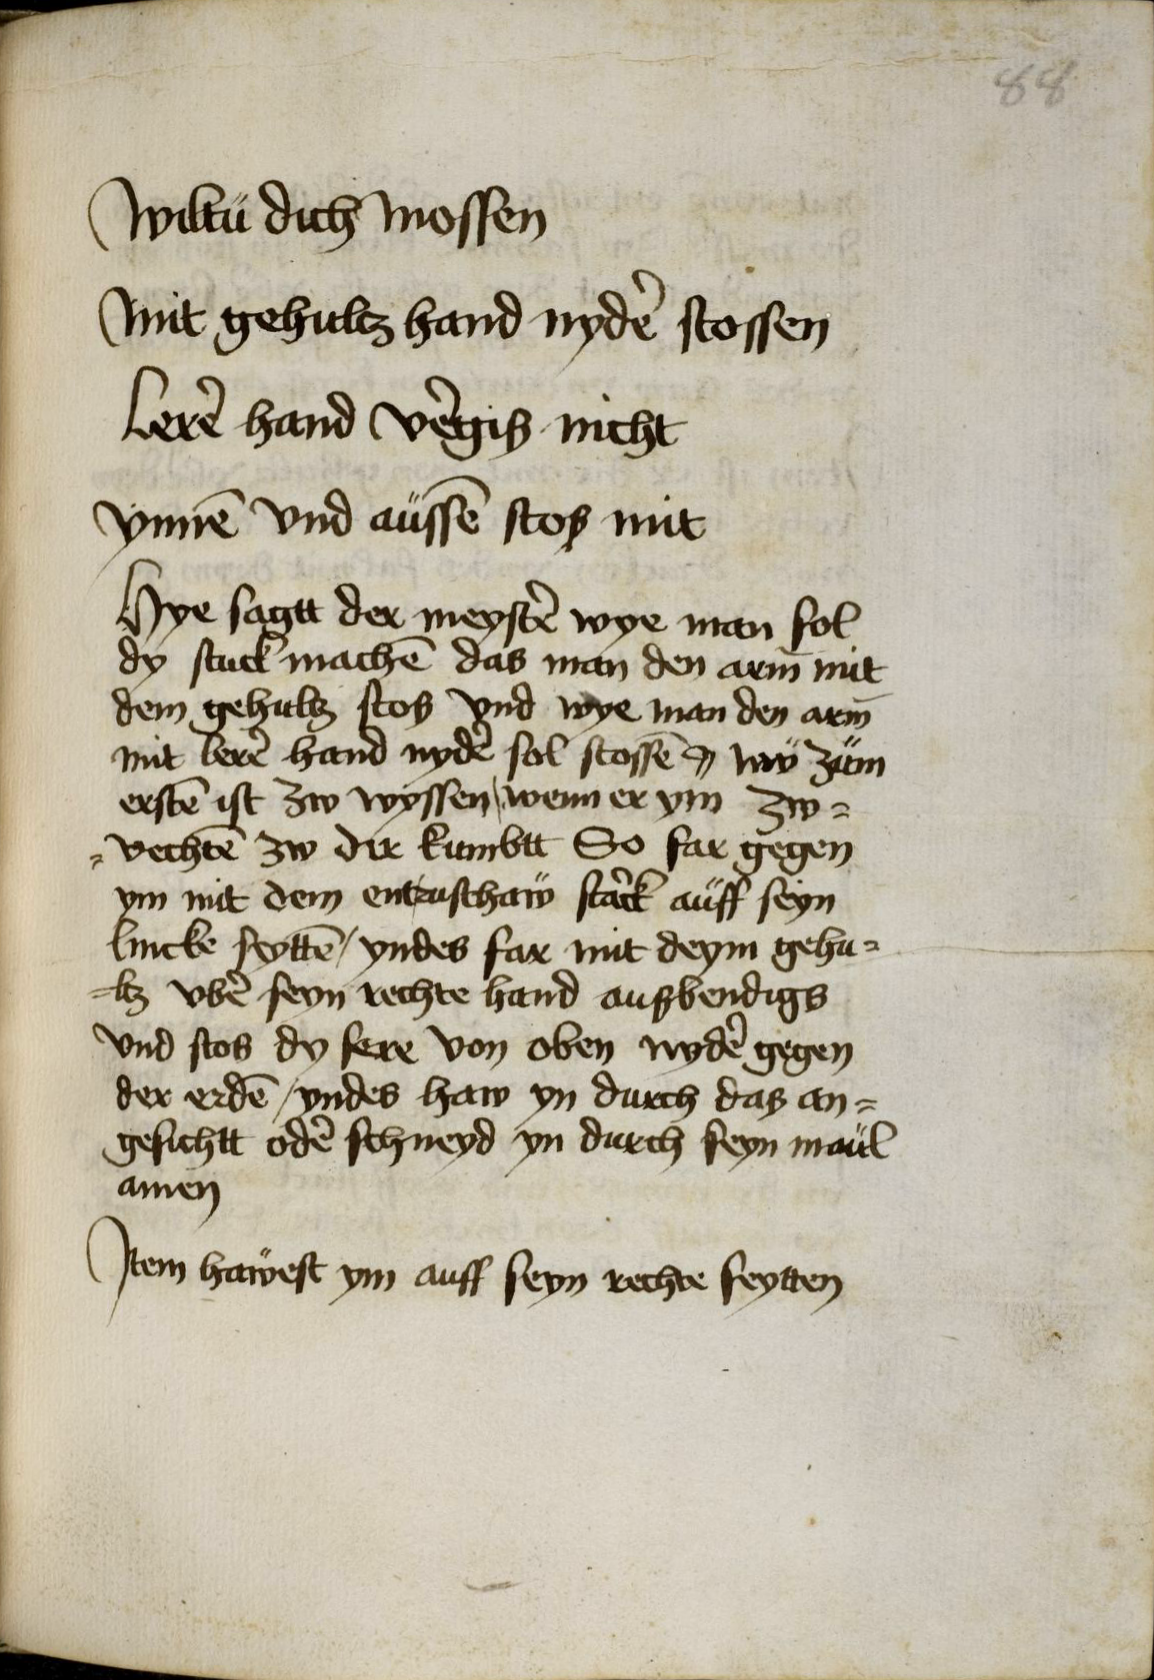 88
Wiltü dich mossen
Mit gehultz hand nyder̄ stossen
Lerer̄ hand ver̄giß nicht
ynnē vnd aüssē stoß mit
Hye sagtt der meyster̄ wye man sol
dy stuck machē das man den arm̄ mit
dem gehultz stos vnd wye man den arm̄
mit lerer̄ hand nyder̄ sol stossē Nw̎ züm
erstē ist zw wyssen / wenn er ym zw=
=vechtē zw dir kumbtt So far gegen
ym mit dem entruschaẅ star̄ck aüff seyn
lincke seyttē / yndes far mit deym gehu=
=ltz vber̄ seyn rechte hand außbendigs
vnd stos dy sere von oben nyder̄ gegen
der erdē / yndes haw yn durch daß an=
gesichtt oder̄ schneyd yn durch seyn maül
amen
Item haẅest ym auff seyn rechte seytten